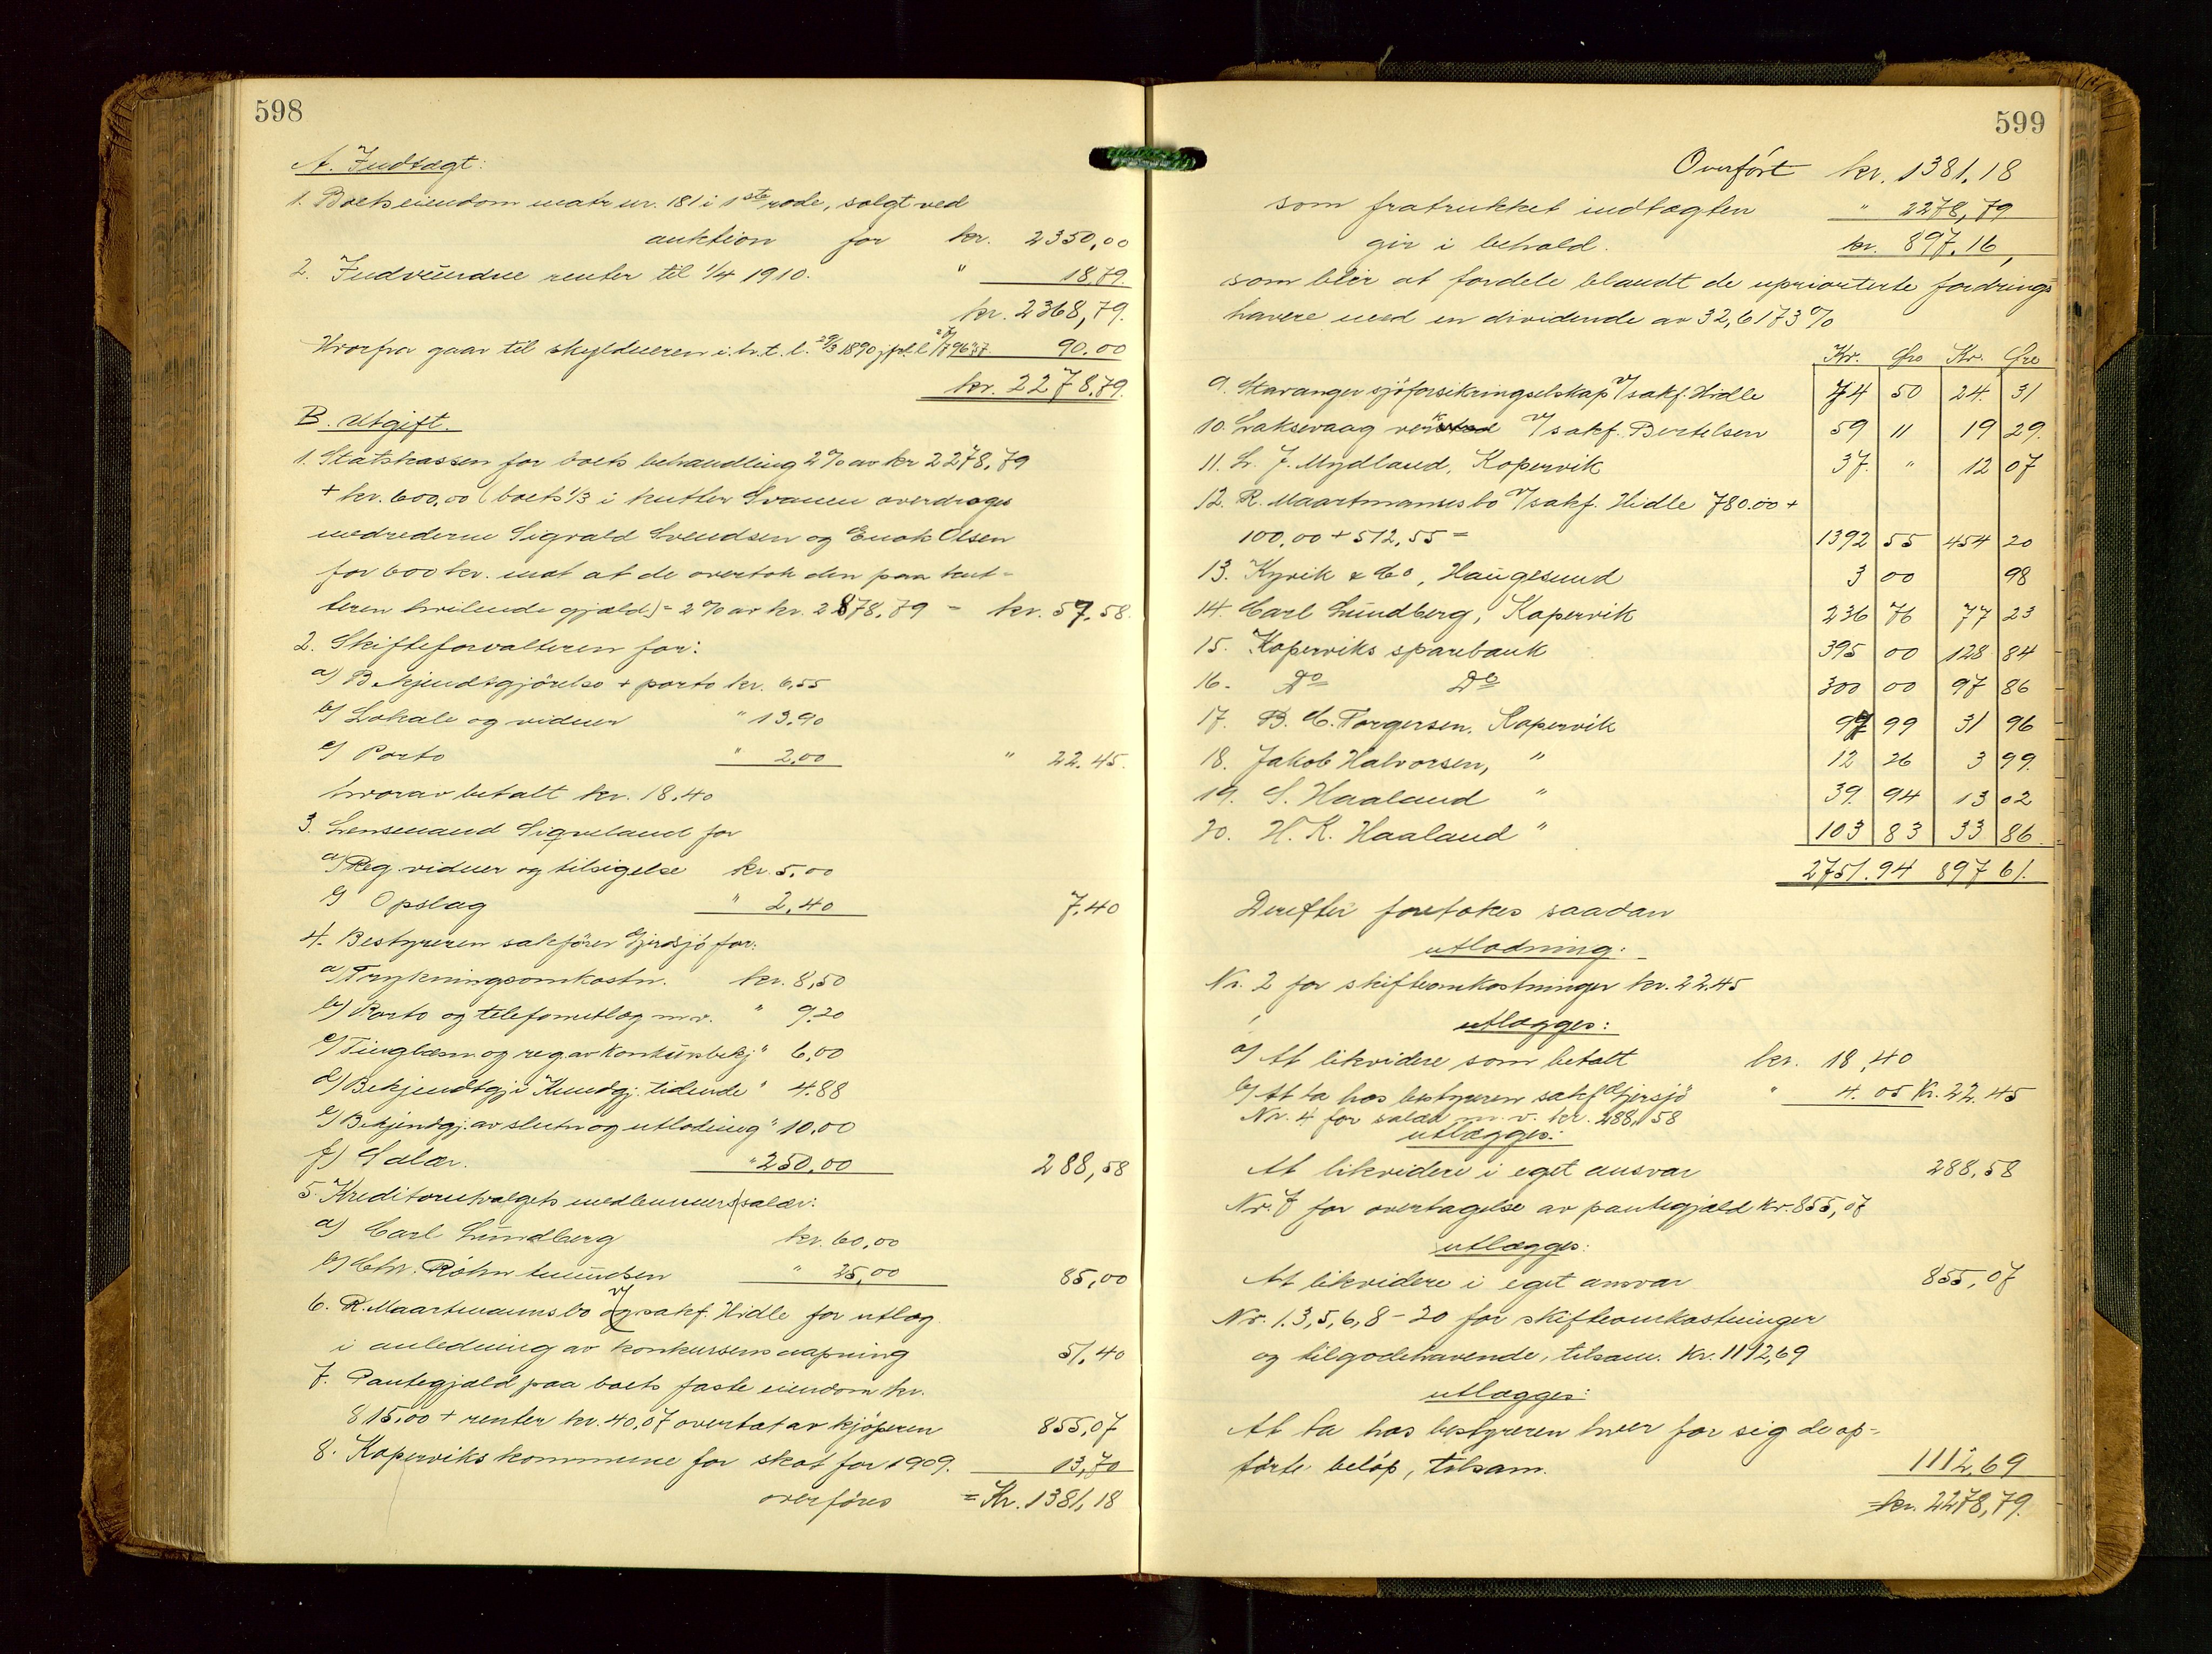 598
A. Indtægt:
1. Boets eiendom matr nr. 181 i 1ste rode, solgt ved
auktion for kr. 2350,00
2. Indvundne renter til 1/4 1910. " 18,79.
kr. 2368,79.
Hvorfra gaar til skylderen i. h. t. l. 29/3 1890 90.00
kr. 2278,79.
B. Utgift.
1. Statskassen for boets behandling 2% av kr 2278,79
+ kr. 600,00 (boets 1/3 i kutter Svanen overdroges
medrederne Sigvald Svendsen og Enok Olsen
for 600 kr. mot at de overtok den paa kut-
teren hvilende gjæld) = 2% av kr. 2878,79 = kr. 57,58.
2. Skifteforvalteren for:
a) Bekjendtgjörelse + porto kr. 6,55
b) Lokale og vidner " 13,90
c) Porto " 2,00 " 22.45.
hvorav betalt kr. 18.40
3. Lensmand Sigveland for
a) Reg. vidner og tilsigelse kr. 5,00
b) Opslag " 2,40 7,40
4. Bestyreren sakförer Gjersjö for:
a) Trykningsomkostn. kr. 8,50
b) Porto og telefonutlæg m.v. " 9,20
c) Tinglæsn. og reg. av konkursbekj " 6,00
d) Bekjendtgj i "Kundgj. tidende" 4.88
e) Bekjendtgj. av slutn og utlodning " 10,00
f) Salær. " 250,00 288,58
5. Kreditorutvalgets medlemmers salær:
a) Carl Lundberg kr. 60,00
b) Chr. Röhn " 25,00 85,00
6. R. Maartmanns bo v/ sakf. Hidle for utlæg
i anledning av konkursens aapning 51,40
7. Pantegjæld paa boets faste eiendom kr.
815,00 + renter kr. 40,07 overtat av kjöperen 855,07
8. Koperviks kommune for skat for 1909. 13,70
overföres = Kr. 1381,18
599
Overfört kr. 1381,18
som fratrukket indtægten " 2278,79
gir i behold. kr. 897,16,
som blir at fordele blandt de upriorterte fordrings-
havere med en dividende av 32,6173%
Kr. Øre Kr. Øre
9. Stavanger sjöforsikringselskap v/ sakf. Hidle 74 50 24 31
10. Laksevaag verk v/ sakf. Bertelsen 59 " 19 29.
11. L. J. Mydland, Kopervik 37. " 12 07
12. R. Maartmanns bo v/ sakf. Hidle 780.00 +
100,00 + 512,55 = 1392 55 454 20
13. Kyvik & Co, Haugesund 3 00 98
14. Carl Lundberg, Kopervik 236 76 77 23
15. Koperviks sparebank 395 00 128 84
16. Do Do 300 00 97 86
17. B. C. Torgersen, Kopervik 97 99 31 96
18. Jakob Halvorsen, " 12 26 3 99.
19. S. Haaland " 39. 94 13 02
20. H. K. Haaland " 103 83 33 86
2751.94 897 61.
Derefter foretokes saadan
utlodning:
Nr. 2 for skifteomkostninger kr. 22.45
utlægges:
a) At likvidere som betalt kr. 18,40
b) At ta hos bestyreren sakf Gjersjö " 4.05 Kr. 22.45
Nr. 4 for salær m.v. kr. 288,58
utlægges:
At likvidere i eget ansvar 288,58
Nr. 7 for overtagelse av pantegjæld kr. 855,07
utlægges:
At likvidere i eget ansvar 855,07
Nr. 1. 3, 5, 6, 8 - 20 for skifteomkostninger
og tilgodehavende, tilsam. kr. 1112,69
utlægges:
At ta hos bestyreren hver for sig de op-
förte belöp, tilsam. 1112,69
= kr. 2278,79.